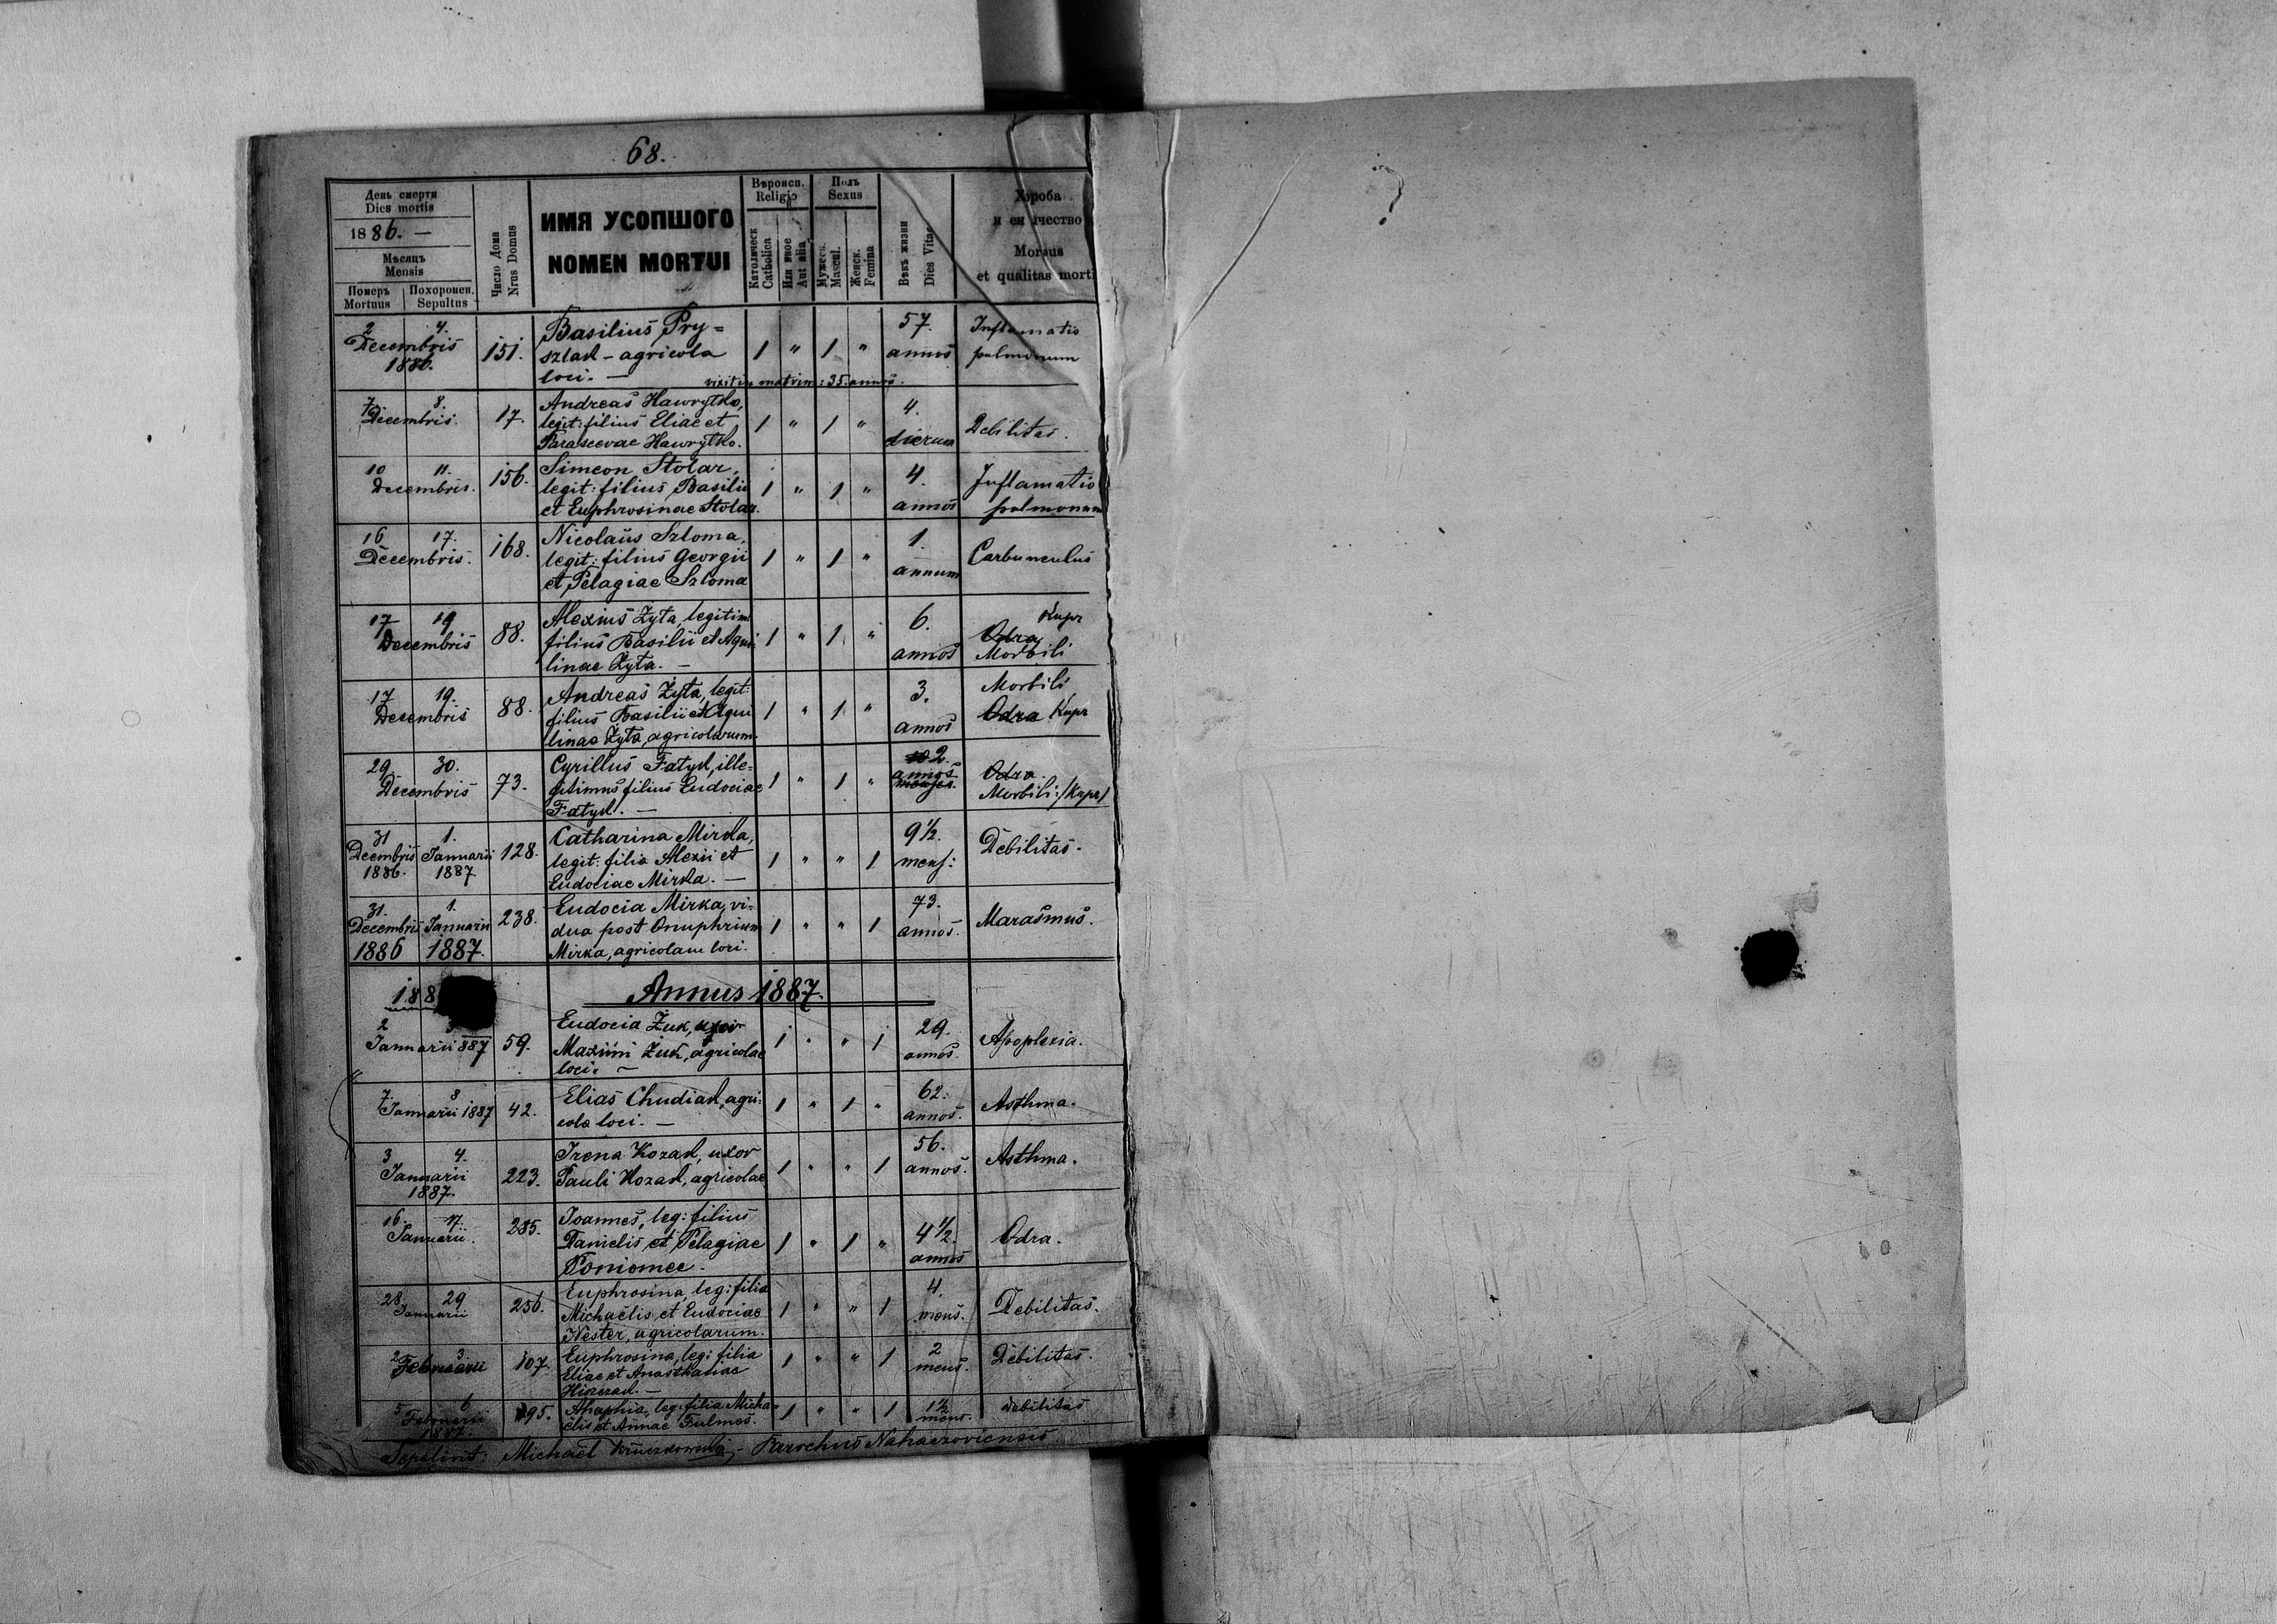 68.
День смерти
Dies mortis
1886. —
Мѣсяцъ
Mensis
Померъ Mortuus
Похоронен. Sepultus
Число Дома
Nrus Domus
ИМЯ УСОПШОГО
NOMEN MORTUI
Вѣроисп.
Religio
Католическ
Catholica
Или иное
Aut alia
Полъ
Sexus
Мужеск.
Mascul.
Женск.
Femina
Вѣкъ жизни
Dies Vitae
Хороба
Morbus
et qualitas morti
2 4. Decembris 1886. 151. Basilius Pry=
szlak - agricola 1 " 1 " 57. annos Inflamatio pulmonum
loci. — vixit in matrim: 35. annos.
7 8. Decembris. 17. Andreas Hawrytko,
legit: filius Eliae et 1 " 1 " 4. dierum Debilitas.
Parascevae Hawrytko.
10 11. Decembris. 156. Simeon Stolar,
legit: filius Basilii 1 " 1 " 4. annos Inflamatio pulmonum
et Euphrosinae Stolar.
16 17. Decembris. 168. Nicolaus Szloma,
legit: filius Georgii 1 " 1 " 1. annum Carbunculus
et Pelagiae Szloma
17 19 Decembris 88. Alexius Żyta, legitim
filius Basilii et Aqui 1 " 1 " 6. annos Odra Kupr Morbili
linae Żyta. —
17 19. Decembris 88. Andreas Żyta, legit:
filius Basilii et Aqui 1 " 1 " 3. annos Morbili Odra Kupr
linae Żyta, agricolarum.
29 30. Decembris 73. Cyrillus Fatyk, ille=
gitimus filius Eudociae 1 " 1 " 2. annos menses. Odra. Morbili: /Kupr/
Fatyk. —
31 Decembris 1886. 1. Januarii 1887. 128. Catharina Mirka,
legit: filia Alexii et 1 " " 1 9½. mens: Debilitas.
Eudociae Mirka. —
31. Decembris 1886 1. Januarii 1887. 238. Eudocia Mirka, vi=
dua post Onuphrium 1 " " 1 73. annos. Marasmus.
Mirka, agricolam loci.
188 Annus 1887.
2 3 Januarii 887 59. Eudocia Żuk, uxor
Maximi Żuk, agricolae 1 " " 1 29. annos. Apoplexia.
loci. —
7 8 Januarii 1887 42. Elias Chudiak, agri=
cola loci. — 1 " 1 " 62. annos. Asthma.
3 4. Januarii 1887. 223. Irena Kozak, uxor
Pauli Kozak, agricolae 1 " " 1 56. annos. Asthma.
16. 17. Januarii. 285. Joannes, leg: filius
Danielis et Pelagiae 1 " 1 " 4½. annos Odra.
Poniomec.
28. 29 Januarii 256. Euphrosina, leg: filia
Michaëlis et Eudociae 1 " " 1 4. mens. Debilitas.
Nester, agricolarum.
2 3. Februarii 107. Euphrosina, leg: filia
Eliae et Anasthasiae 1 " " 1 2 mens. Debilitas.
5 6 Februarii 1887. 95. Ahaphia, leg: filia Micha=
ëlis et Annae Fulmes. 1 " " 1 1½ mens. debilitas
Sepelivit: Michaël Parochus Nahaczoviensis